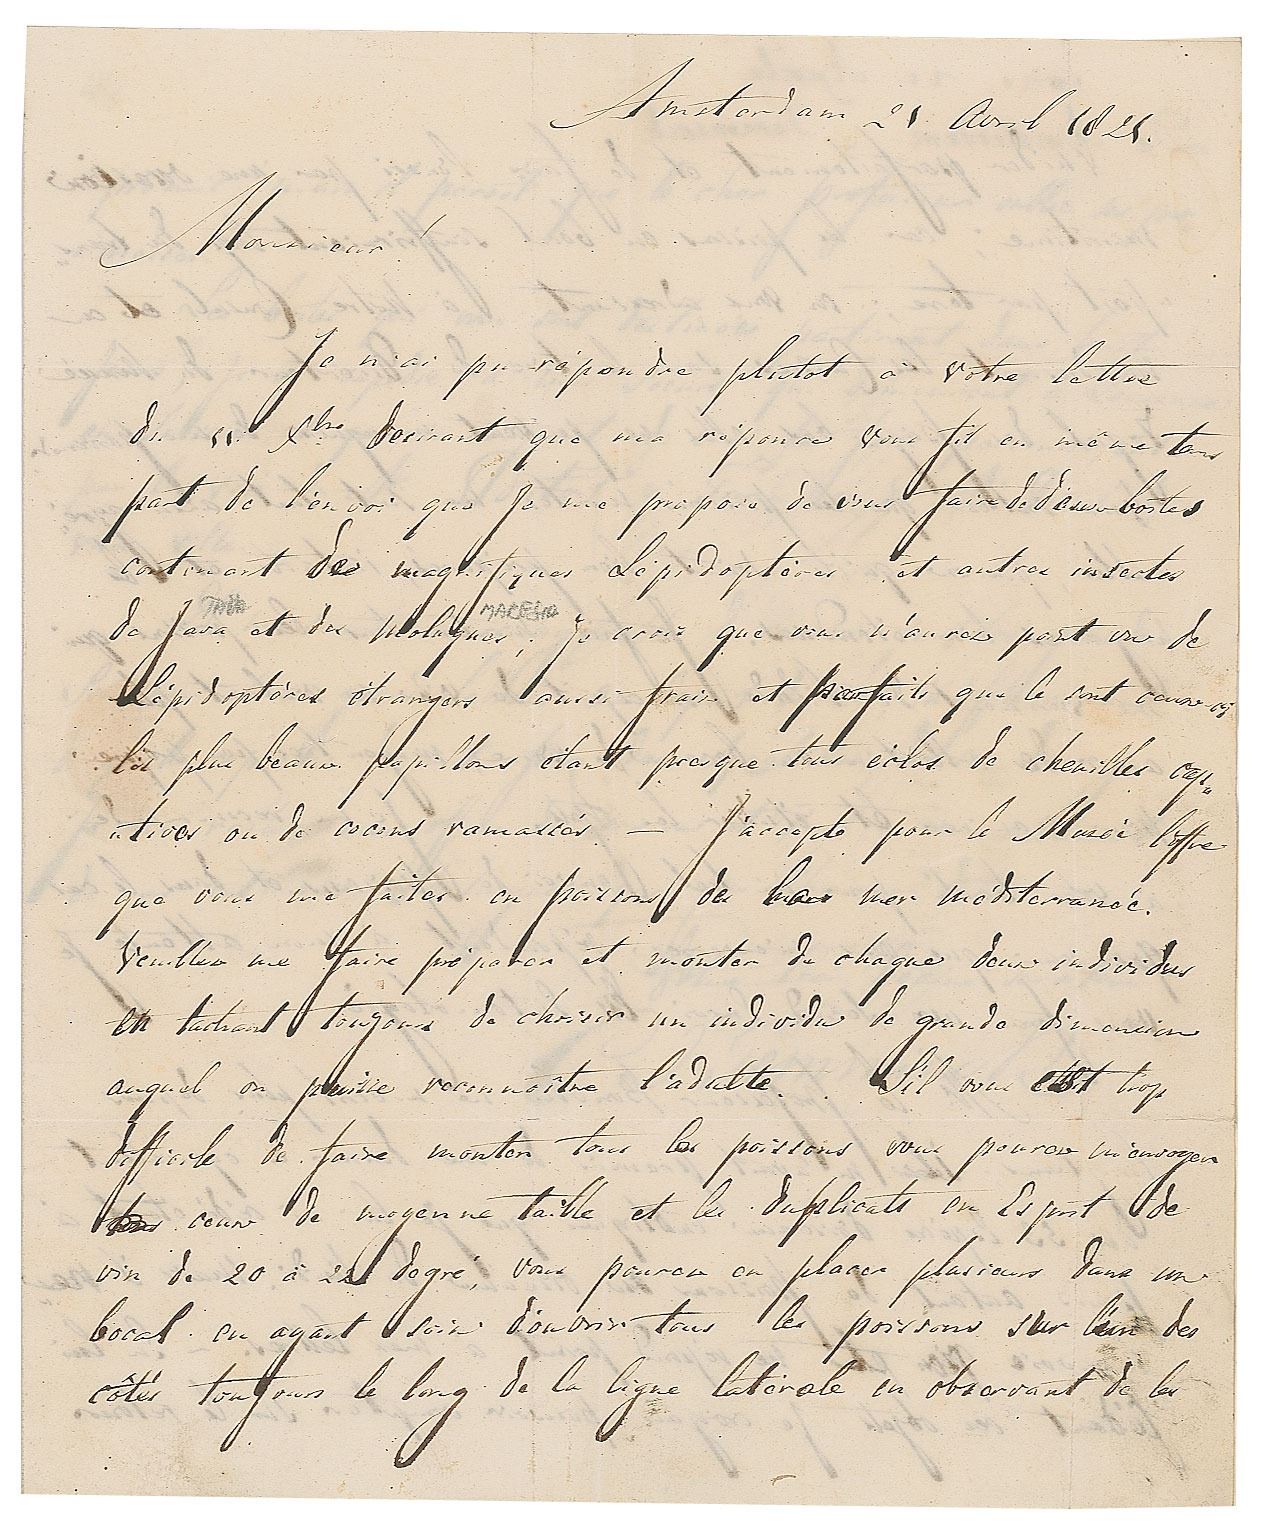 Amsterdam 21 Avril 1821.
Monsieur!
Je n'ai pu répondre plutot à votre lettre
du 11 Xbre desirant que ma réponse vous fit en même tems
part de l'envoi que Je me propose de vous faire de deux boites
contenant des magnifiques Lépidoptères et autres insectes
de Java et des Moluques; Je crois que vous n'aurez point vu de
Lépidoptères étrangers aussi frais et parfaits que le sont ceux-ci
les plus beaux papillons étant presque tous éclos de chenilles cap„
„tives ou de cocons ramassés — J'accepte pour le Musée l'offre
que vous me faites en poissons de mer mediterranée.
Veuillez me faire préparer et monter de chaque deux individus
en tachant toujours de choisir un individu de grande dimension
auquel on puisse reconnoitre l'adulte. S'il vous est trop
difficile de faire monter tous les poissons vous pourez m'envoyer
ceux de moyenne taille et les duplicats en Esprit de
vin de 20 à 22 degré, vous pourez en placer plusieurs dans un
bocal en ayant soin d'ouvrir tous les poissons sur l'un des
côtés toujours le long de la ligne latérale en observant de les